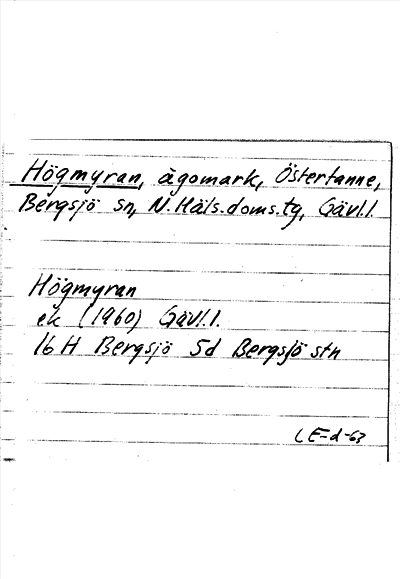 Högmyran, ägomark, Östertanne,
Bergsjö sn, N. Häls. doms. tg, Gävl.l.
Högmyran
ek (1960) Gävl.l.
16 H Bergsjö 5d Bergsjö stn
LE-d-63